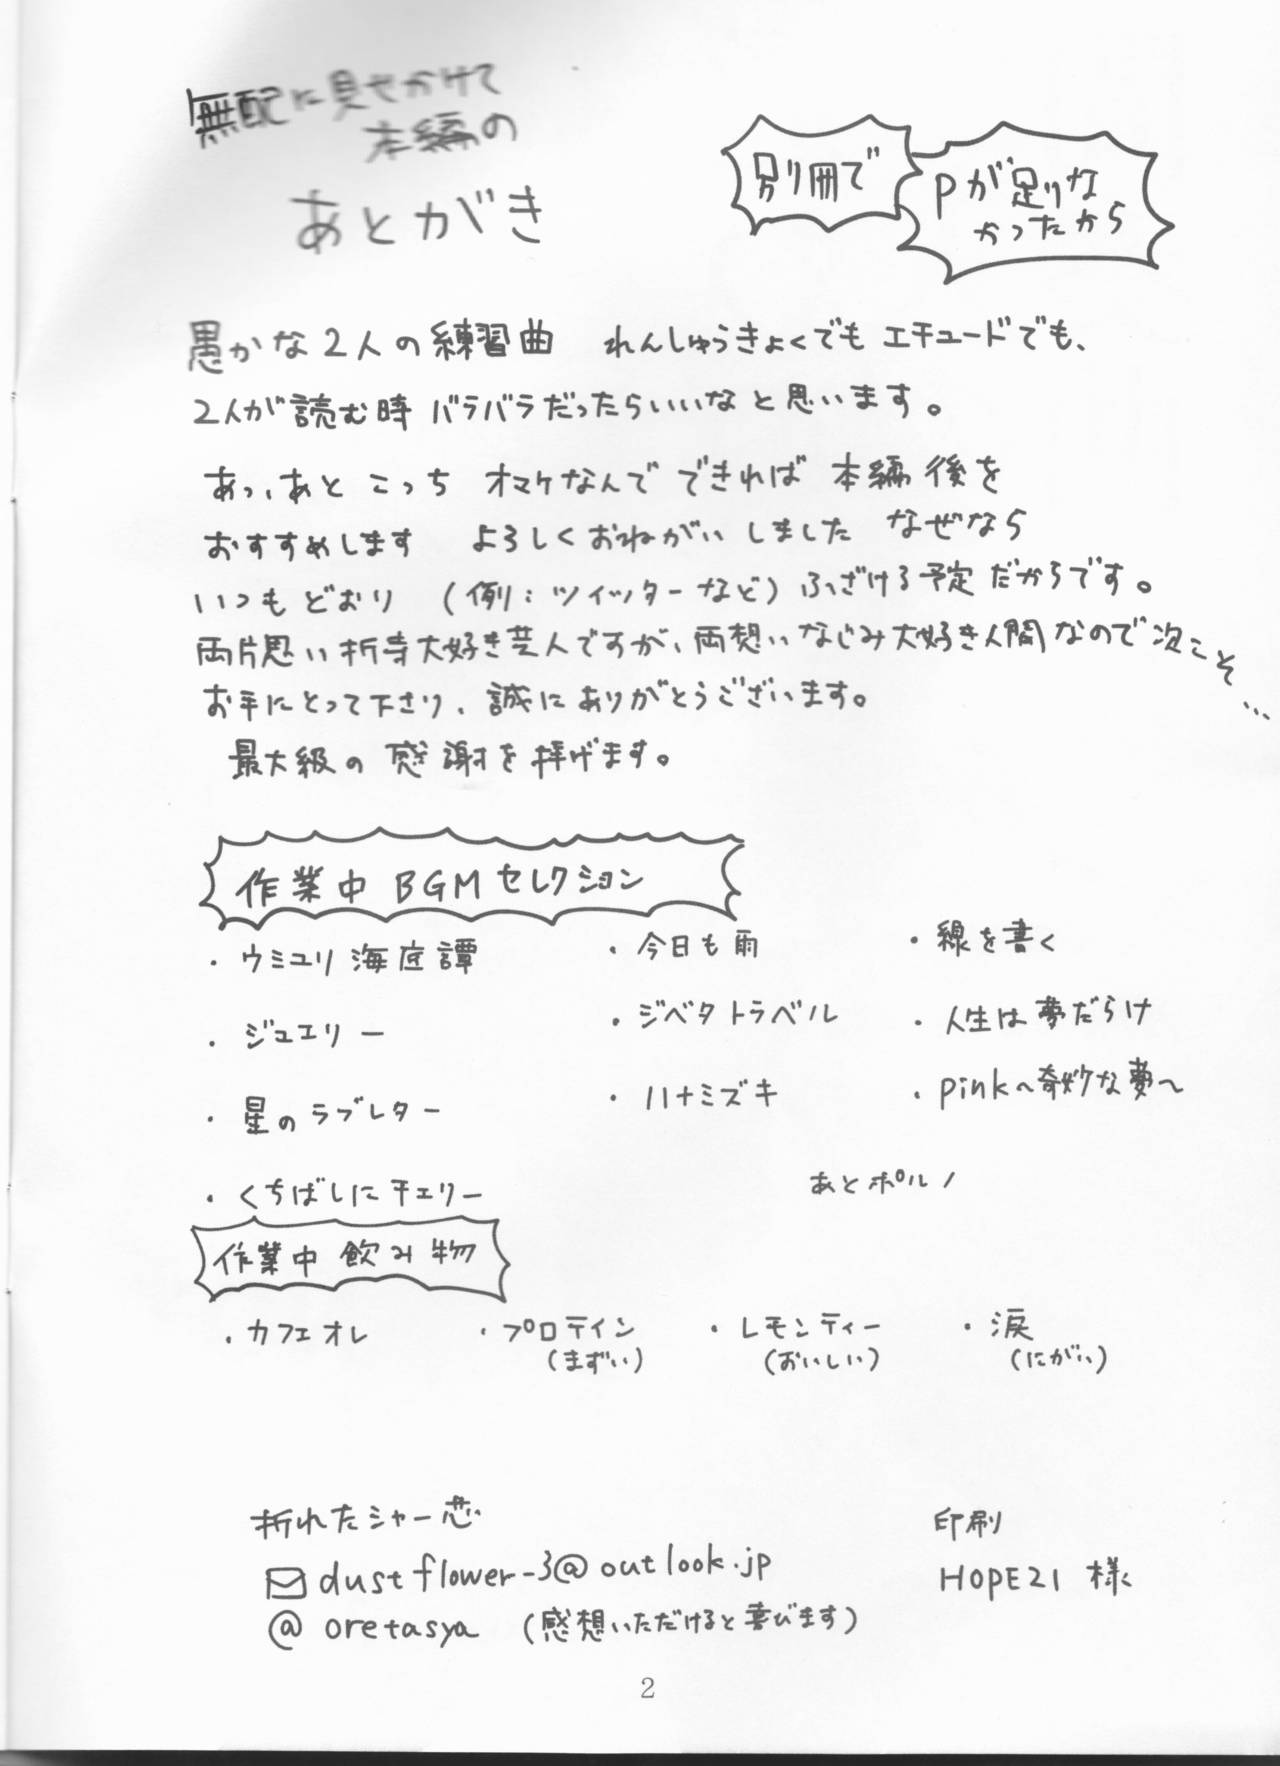 無配に見せかけて
本編の
あとがき
別冊で
Pが足りな
かったから
愚かな2人の練習曲 れんしゅうきょくでも エチュードでも、
2人が読む時 バラバラだったらいいなと思います。
あっ、あと こっち オマケなんで できれば 本編後を
おすすめします よろしくおねがいしました なぜなら
いつもどおり (例:ツイッターなど) ふざける予定だからです。
両片思い折寺大好き芸人ですが、両想いなじみ大好き人間なので次こそ…
お手にとって下さり、誠にありがとうございます。
最大級の感謝を捧げます。
作業中BGMセレクション
・ウミユリ海底譚
・ジュエリー
・星のラブレター
・くちばしにチェリー
・今日も雨
・ジベタトラベル
・ハナミズキ
・線を書く
・人生は夢だらけ
・pink〜奇妙な夢〜
あとポルノ
作業中飲み物
・カフェオレ ・プロテイン ・レモンティー ・涙
(まずい) (おいしい) (にがい)
折れたシャー芯
dustflower-3@outlook.jp
@oretasya (感想いただけると喜びます)
印刷
HOPE21 様
2